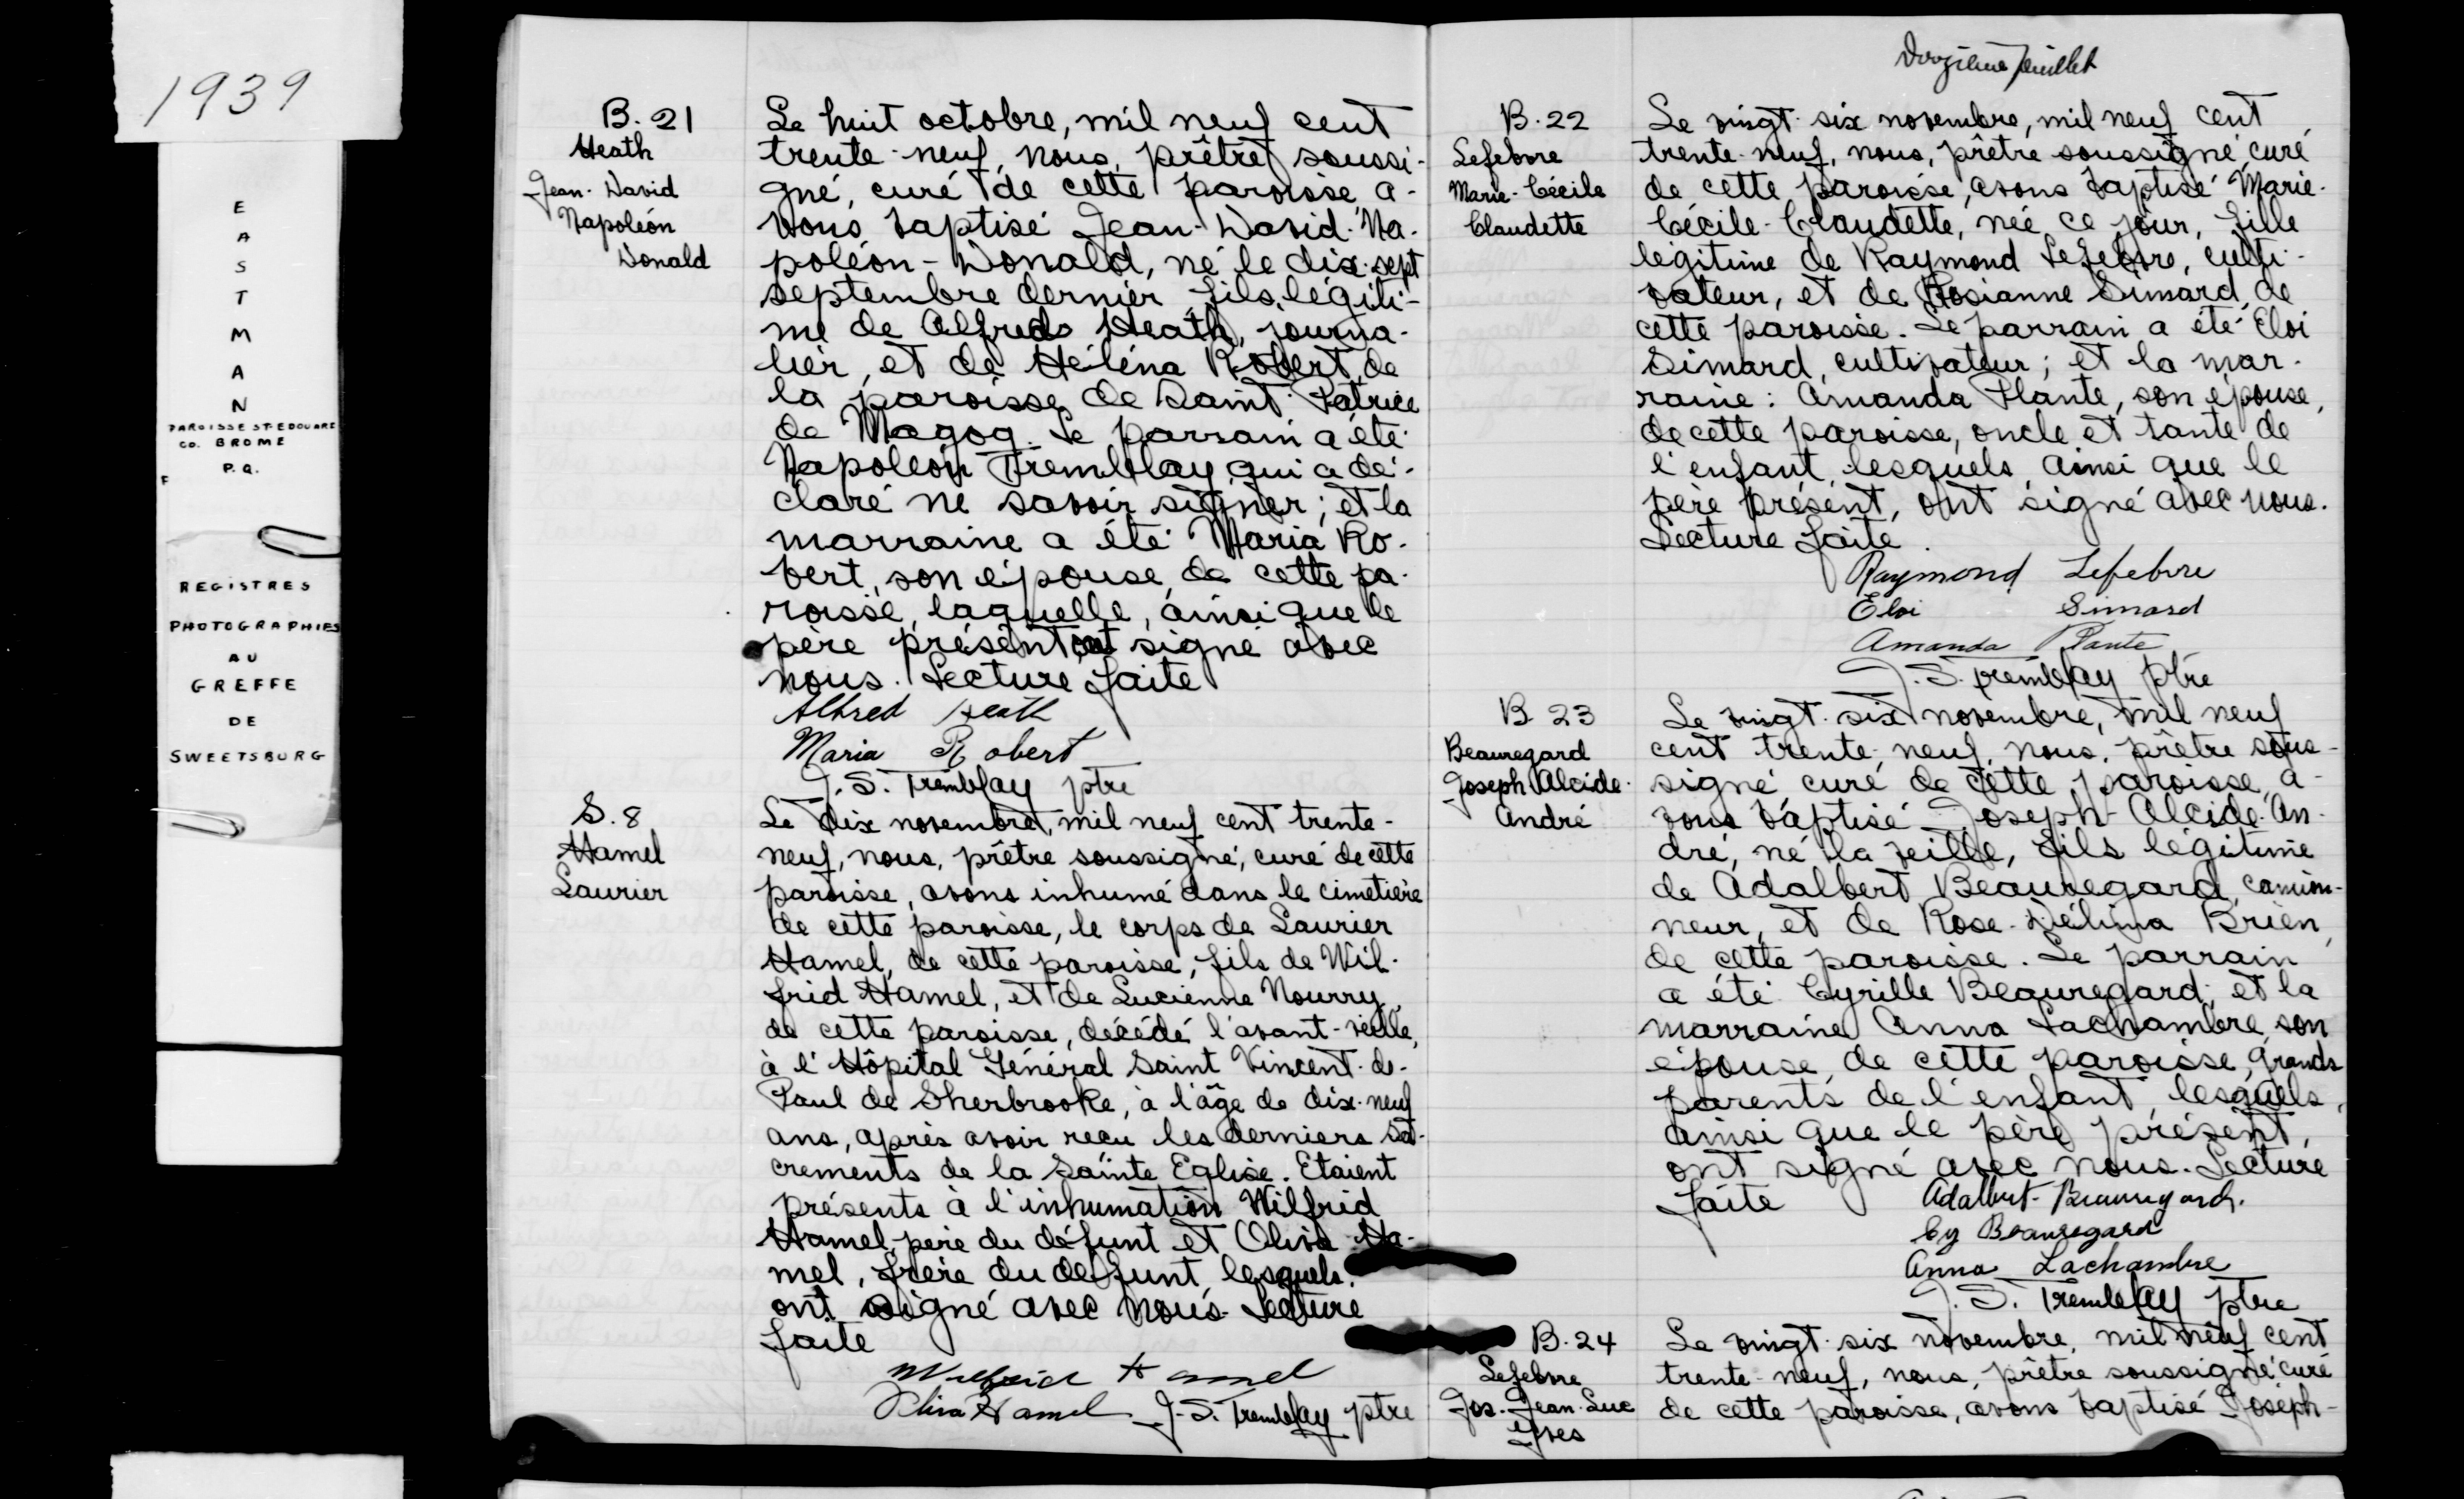 1939
E
A
S
T
M
A
N
PAROISSE ST-EDOUARD
CO. BROME
P.Q.
F
REGISTRES
PHOTOGRAPHIES
AU
GREFFE
DE
SWEETSBURG
B. 21
Heath
Jean-David
Napoléon
Donald
Le huit octobre, mil neuf cent
trente-neuf, nous, prêtre soussi-
gné, curé de cette paroisse a-
vons baptisé Jean-David-Na-
poléon-Donald, né le dix-sept
septembre dernier, fils légiti-
me de Alfred Heath, journa-
lier, et de Héléna Robert, de
la paroisse de Saint-Patrice
de Magog. Le parrain a été
Napoléon Tremblay qui a dé-
claré ne savoir signer; et la
marraine a été Maria Ro-
bert, son épouse, de cette pa-
roisse, laquelle, ainsi que le
père présent, ont signé avec
nous. Lecture faite
Alfred Heath
Maria Robert
J. S. Tremblay ptre
S. 8
Hamel
Laurier
Le dix novembre, mil neuf cent trente-
neuf, nous, prêtre soussigné, curé de cette
paroisse, avons inhumé dans le cimetière
de cette paroisse, le corps de Laurier
Hamel, de cette paroisse, fils de Wil-
frid Hamel, et de Lucienne Nourry,
de cette paroisse, décédé l'avant-veille,
à l'Hôpital Général Saint Vincent-de-
Paul de Sherbrooke, à l'âge de dix-neuf
ans, après avoir reçu les derniers sa-
crements de la Sainte Eglise. Etaient
présents à l'inhumation Wilfrid
Hamel, père du défunt et Oliva Ha-
mel, frère du défunt, lesquels,
ont signé avec nous. Lecture
faite
Wilfrid Hamel
Oliva Hamel J.-S. Tremblay ptre
Douzième feuillet
B. 22
Lefebvre
Marie-Cécile
Claudette
Le vingt-six novembre, mil neuf cent
trente-neuf, nous, prêtre soussigné, curé
de cette paroisse, avons baptisé Marie-
Cécile-Claudette, née ce jour, fille
légitime de Raymond Lefebvre, culti-
vateur, et de Rosianne Simard, de
cette paroisse. Le parrain a été Eloi
Simard, cultivateur; et la mar-
raine: Amanda Plante, son épouse,
de cette paroisse, oncle et tante de
l'enfant, lesquels, ainsi que le
père présent, ont signé avec nous.
Lecture faite.
Raymond Lefebvre
Eloi Simard
Amanda Plante
J. S. Tremblay ptre
B 23
Beauregard
Joseph-Alcide-
André
Le vingt-six novembre, mil neuf
cent trente-neuf, nous, prêtre sous-
signé curé de cette paroisse, a-
vons baptisé Joseph-Alcide-An-
dré, né la veille, fils légitime
de Adalbert Beauregard, camion-
neur, et de Rose-Délima Brien,
de cette paroisse. Le parrain
a été Cyrille Beauregard, et la
marraine Anna Lachambre, son
épouse, de cette paroisse, grands
parents de l'enfant, lesquels,
ainsi que le père présent,
ont signé avec nous. Lecture
faite
Adalbert Beauregard.
Cy Beauregard
Anna Lachambre
J. S. Tremblay ptre
B. 24
Lefebvre
Jos.-Jean-Luc
Yves
Le vingt-six novembre, mil neuf cent
trente-neuf, nous, prêtre soussigné, curé
de cette paroisse, avons baptisé Joseph-